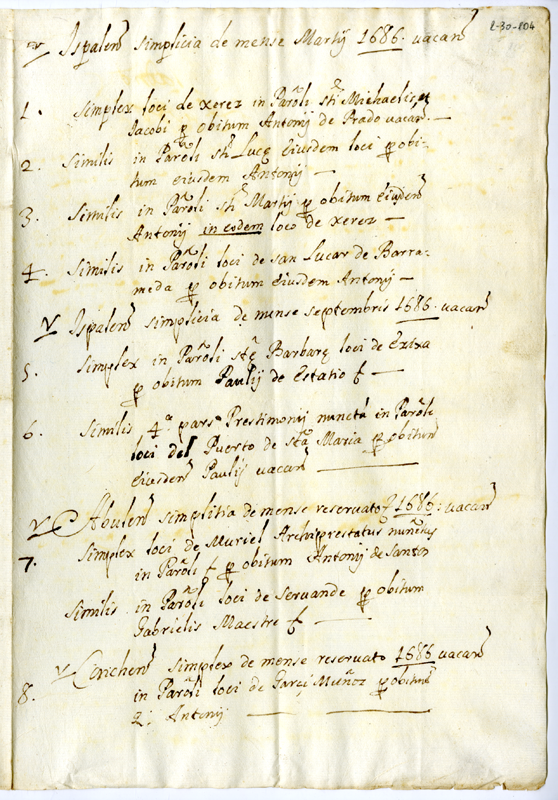 2-30-804
Ispalen̄ simplicia de mense Martij 1686. vacan̄
1. Simplex loci de xerez in Par̄oli s̄ti Michaelis, et
Jacobi p obitum Antonij de Prado vacan̄. —
2. Similis in Par̄oli s̄ti Lucę eiusdem loci p obi-
tum eiusdem Antonij —
3. Similis in Par̄oli s̄ti Martij p obitum eiusdem̄
Antonij in eodem loco de xerez —
4. Similis in Par̄oli loci de san Lucar de Barra-
meda p obitum eiusdem Antonij —
V Ispalen̄ simplicia de mense septembris 1686. vacan̄
5. Simplex in Par̄oli stę Barbarę loci de Exixa
p obitum Paulij de Estatio —
6. Similis 4.ª pars Prestimonij nuncta in Par̄oli
loci del Puerto de sta Maria p obitum
eiusdem̄ Paulij vacan̄ —
V Abulen̄ simplitia de mense reservato 1686: vacan̄
7. Simplex loci de Muriel Archiprestatus
in Par̄oli p obitum Antonij de santos
Similis in Par̄oli loci de Servande p obitum
Gabrielis Maestre —
V Conchen̄ simplex de mense reservato 1686 vacan̄
8. in Par̄oli loci de Garçi Muñoz p obitum
Antonij —